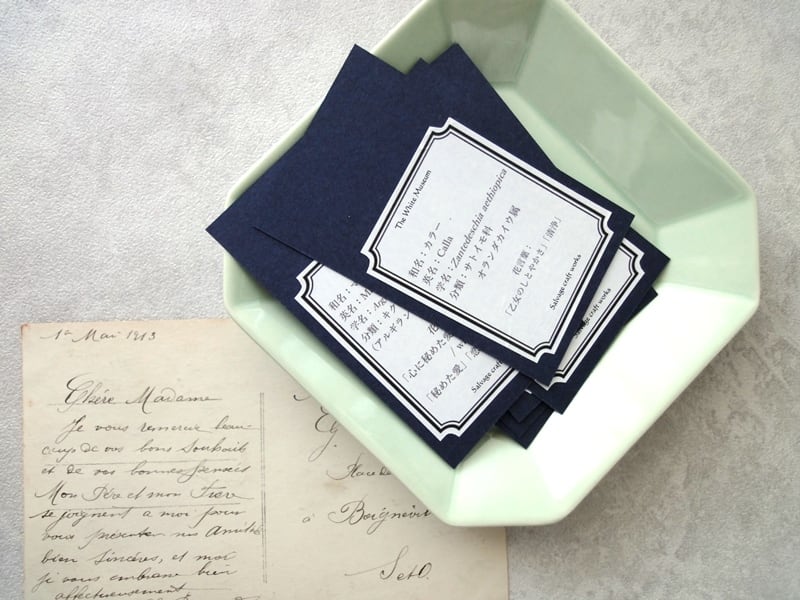 The White Museum
和名：カラー
英名：Calla
学名：Zantedeschia aethiopica
分類：サトイモ科
オランダカイウ属
花言葉：
「乙女のしとやかさ」「清浄」
Salvage craft works
和名：
英名：M
学名：Arg
分類：キク
(アルギラン
花
/ w
「心に秘めた愛
「秘めた愛」「恋
Salvage craft works
Salvage craft works
1er Mai 1913
Chère Madame
Je vous remercie beau-
coup de vos bons souhaits
et de vos bonnes pensées
Mon Père et mon frère
se joignent à moi pour
vous présenter nos Amitiés
bien sincères, et moi
je vous embrasse bien
affectueusement
Place de
à Boignévil
S et O.